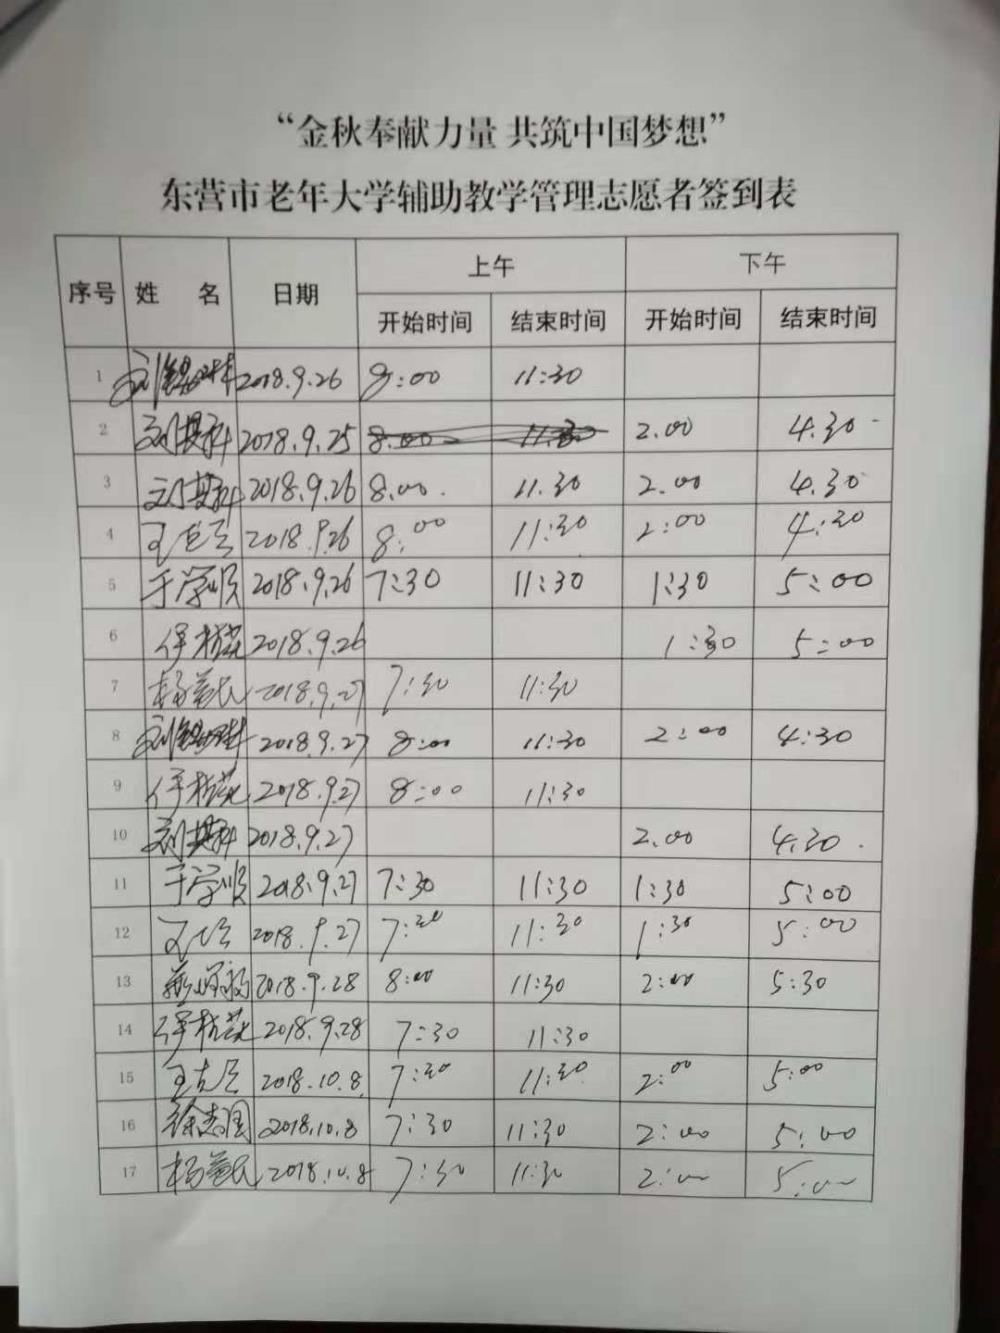 “金秋奉献力量 共筑中国梦想”
东营市老年大学辅助教学管理志愿者签到表
序号 姓 名 日期 上午 下午
开始时间 结束时间 开始时间 结束时间
1 2018.9.26 8:00 11:30
2 刘其科 2018.9.25 2.00 4.30
3 刘其科 2018.9.26 8.00. 11.30 2.00 4.30
4 2018.9.26 8:00 11:30 2:00 4:30
5 于学顺 2018.9.26 7:30 11:30 1:30 5:00
6 2018.9.26 1:30 5:00
7 杨益民 2018.9.27 7:30 11:30
8 2018.9.27 8:00 11:30 2:00 4:30
9 2018.9.27 8:00 11:30
10 刘其科 2018.9.27 2.00 4.30.
11 于学顺 2018.9.27 7:30 11:30 1:30 5:00
12 2018.9.27 7:30 11:30 1:30 5:00
13 2018.9.28 8:00 11:30 2:00 5:30
14 2018.9.28 7:30 11:30
15 2018.10.8 7:30 11:30 2:00 5:00
16 徐志国 2018.10.8 7:30 11:30 2:00 5:00
17 杨益民 2018.10.8 7:30 11:30 2:00 5:00